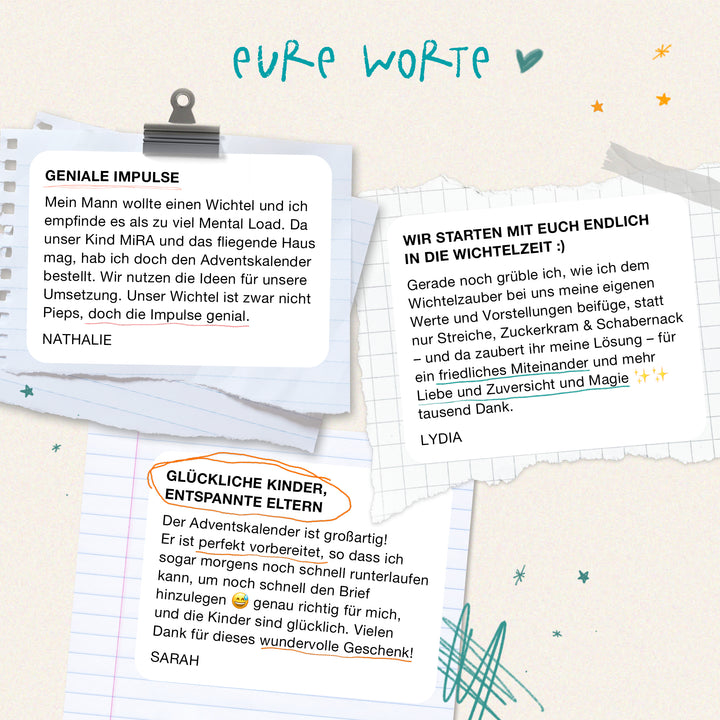 EURE WORTE
GENIALE IMPULSE
Mein Mann wollte einen Wichtel und ich
empfinde es als zu viel Mental Load. Da
unser Kind MiRA und das fliegende Haus
mag, hab ich doch den Adventskalender
bestellt. Wir nutzen die Ideen für unsere
Umsetzung. Unser Wichtel ist zwar nicht
Pieps, doch die Impulse genial.
NATHALIE
WIR STARTEN MIT EUCH ENDLICH
IN DIE WICHTELZEIT :)
Gerade noch grüble ich, wie ich dem
Wichtelzauber bei uns meine eigenen
Werte und Vorstellungen beifüge, statt
nur Streiche, Zuckerkram & Schabernack
– und da zaubert ihr meine Lösung – für
ein friedliches Miteinander und mehr
Liebe und Zuversicht und Magie ✨✨
tausend Dank.
LYDIA
GLÜCKLICHE KINDER,
ENTSPANNTE ELTERN
Der Adventskalender ist großartig!
Er ist perfekt vorbereitet, so dass ich
sogar morgens noch schnell runterlaufen
kann, um noch schnell den Brief
hinzulegen 😅 genau richtig für mich,
und die Kinder sind glücklich. Vielen
Dank für dieses wundervolle Geschenk!
SARAH